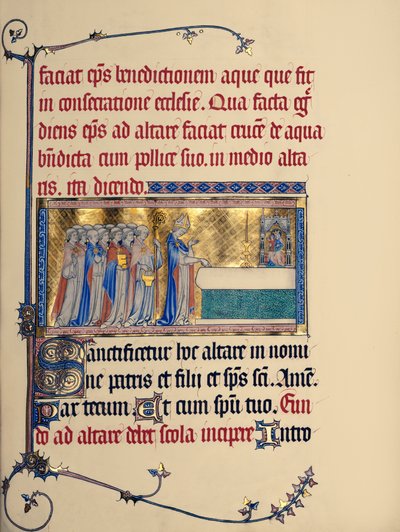 faciat ep̃s benedictionem aque que fit
in consecratione ecclesie. Qua facta eg̃
diens ep̃s ad altare faciat crucẽ de aqua
bñdicta cum pollice suo. in medio alta
ris. ita dicendo.
Sanctificetur hoc altare in nomi
ne patris et filij et sp̃s sc̃i. Amẽ.
Pax tecum. Et cum sp̃u tuo. Eun
do ad altare debet scola incipere Intro